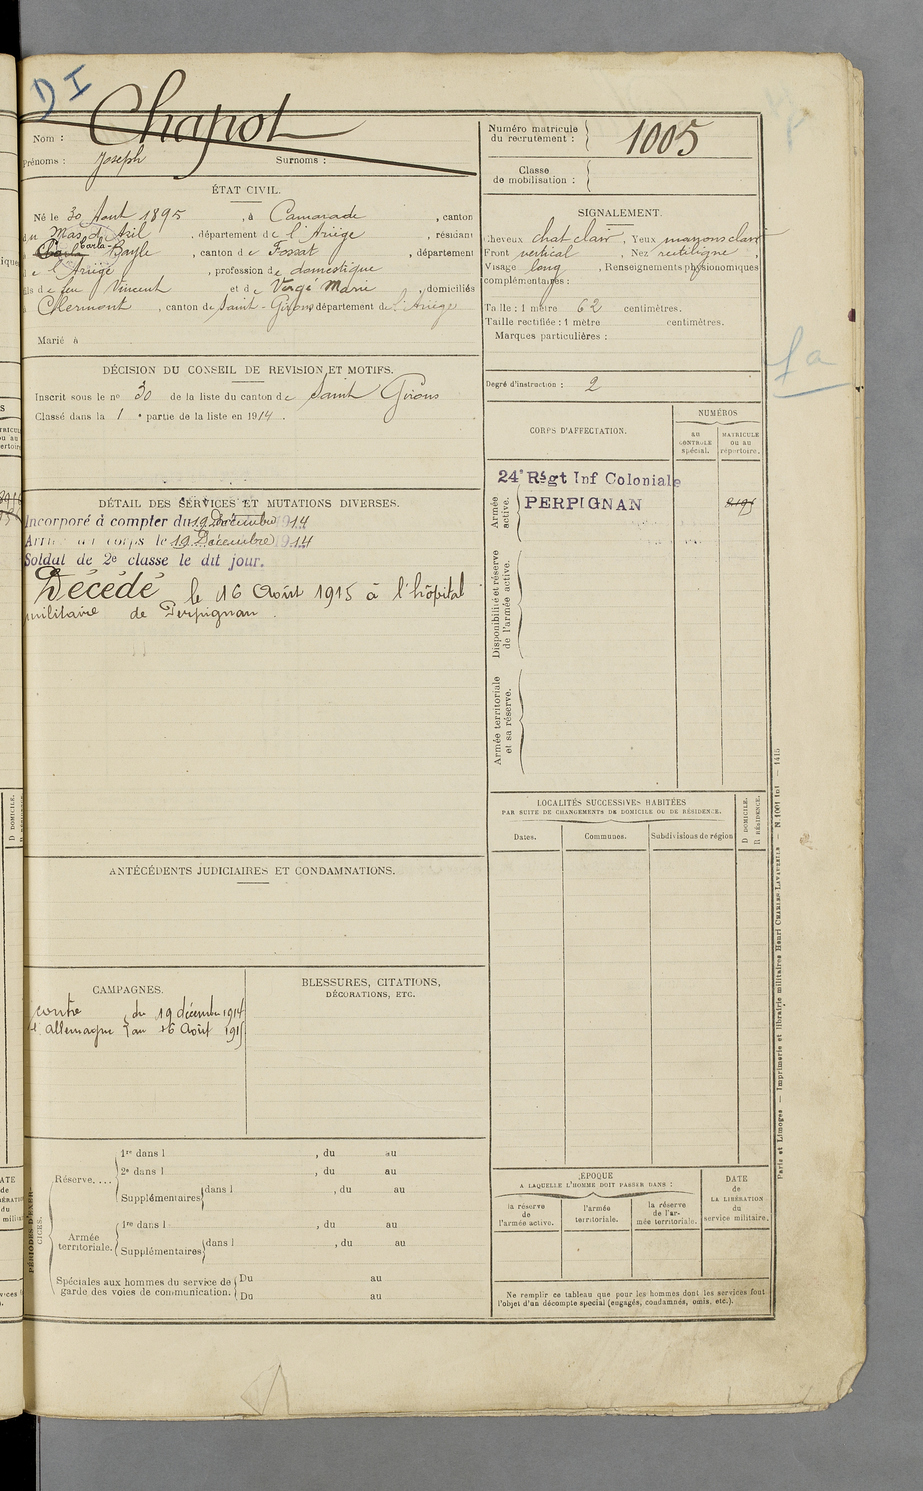 D I
Chapot
Nom :
Prénoms : Joseph Surnoms :
Numéro matricule
du recrutement : 1005
Classe
de mobilisation :
ÉTAT CIVIL.
Né le 30 Aout 1895, à Camarade, canton
du Mas d'Azil, département de l'Ariège, résidant
Carla-Bayle, canton de Fossat, département
de l'Ariège, profession de domestique
fils de feu Vincent et de Vergé Marie, domiciliés
à Clermont, canton de Saint-Girons département de l'Ariège
Marié à
SIGNALEMENT.
Cheveux chat clair, Yeux marrons clair
Front vertical, Nez rectiligne
Visage long, Renseignements physionomiques
complémentaires :
Taille : 1 mètre 62 centimètres.
Taille rectifiée : 1 mètre centimètres.
Marques particulières :
DÉCISION DU CONSEIL DE REVISION ET MOTIFS.
Inscrit sous le no 30 de la liste du canton de Saint Girons
Classé dans la 1e partie de la liste en 1914.
Degré d'instruction : 2
CORPS D'AFFECTATION.
NUMÉROS
AU
CONTROLE
spécial.
MATRICULE
OU AU
répertoire.
24e Régt Inf Coloniale
PERPIGNAN
Armée
active.
Disponibilité et réserve
de l'armée active.
Armée territoriale
et sa réserve.
DÉTAIL DES SERVICES ET MUTATIONS DIVERSES.
Incorporé à compter du 19 Décembre 1914
Arrivé au corps le 19 Décembre 1914
Soldat de 2e classe le dit jour.
Décédé le 16 Août 1915 à l'hôpital
militaire de Perpignan.
LOCALITÉS SUCCESSIVES HABITÉES
PAR SUITE DE CHANGEMENTS DE DOMICILE OU DE RÉSIDENCE.
Dates.
Communes.
Subdivisions de région
D DOMICILE.
R RÉSIDENCE.
ANTÉCÉDENTS JUDICIAIRES ET CONDAMNATIONS.
CAMPAGNES.
contre du 19 décembre 1914
l'allemagne au 16 Août 1915
BLESSURES, CITATIONS,
DÉCORATIONS, ETC.
PÉRIODES D'EXERCICES.
Réserve....
1re dans l , du au
2e dans l , du au
Supplémentaires dans l , du au
Armée
territoriale.
1re dans l , du au
Supplémentaires dans l , du au
Spéciales aux hommes du service de
garde des voies de communication.
Du au
Du au
ÉPOQUE
A LAQUELLE L'HOMME DOIT PASSER DANS :
la réserve
de
l'armée active.
l'armée
territoriale.
la réserve
de l'ar-
mée territoriale.
DATE
de
LA LIBÉRATION
du
service militaire.
Ne remplir ce tableau que pour les hommes dont les services font
l'objet d'un décompte spécial (engagés, condamnés, omis, etc.).
Paris et Limoges — Imprimerie et librairie militaires Henri CHARLES-LAVAUZELLE